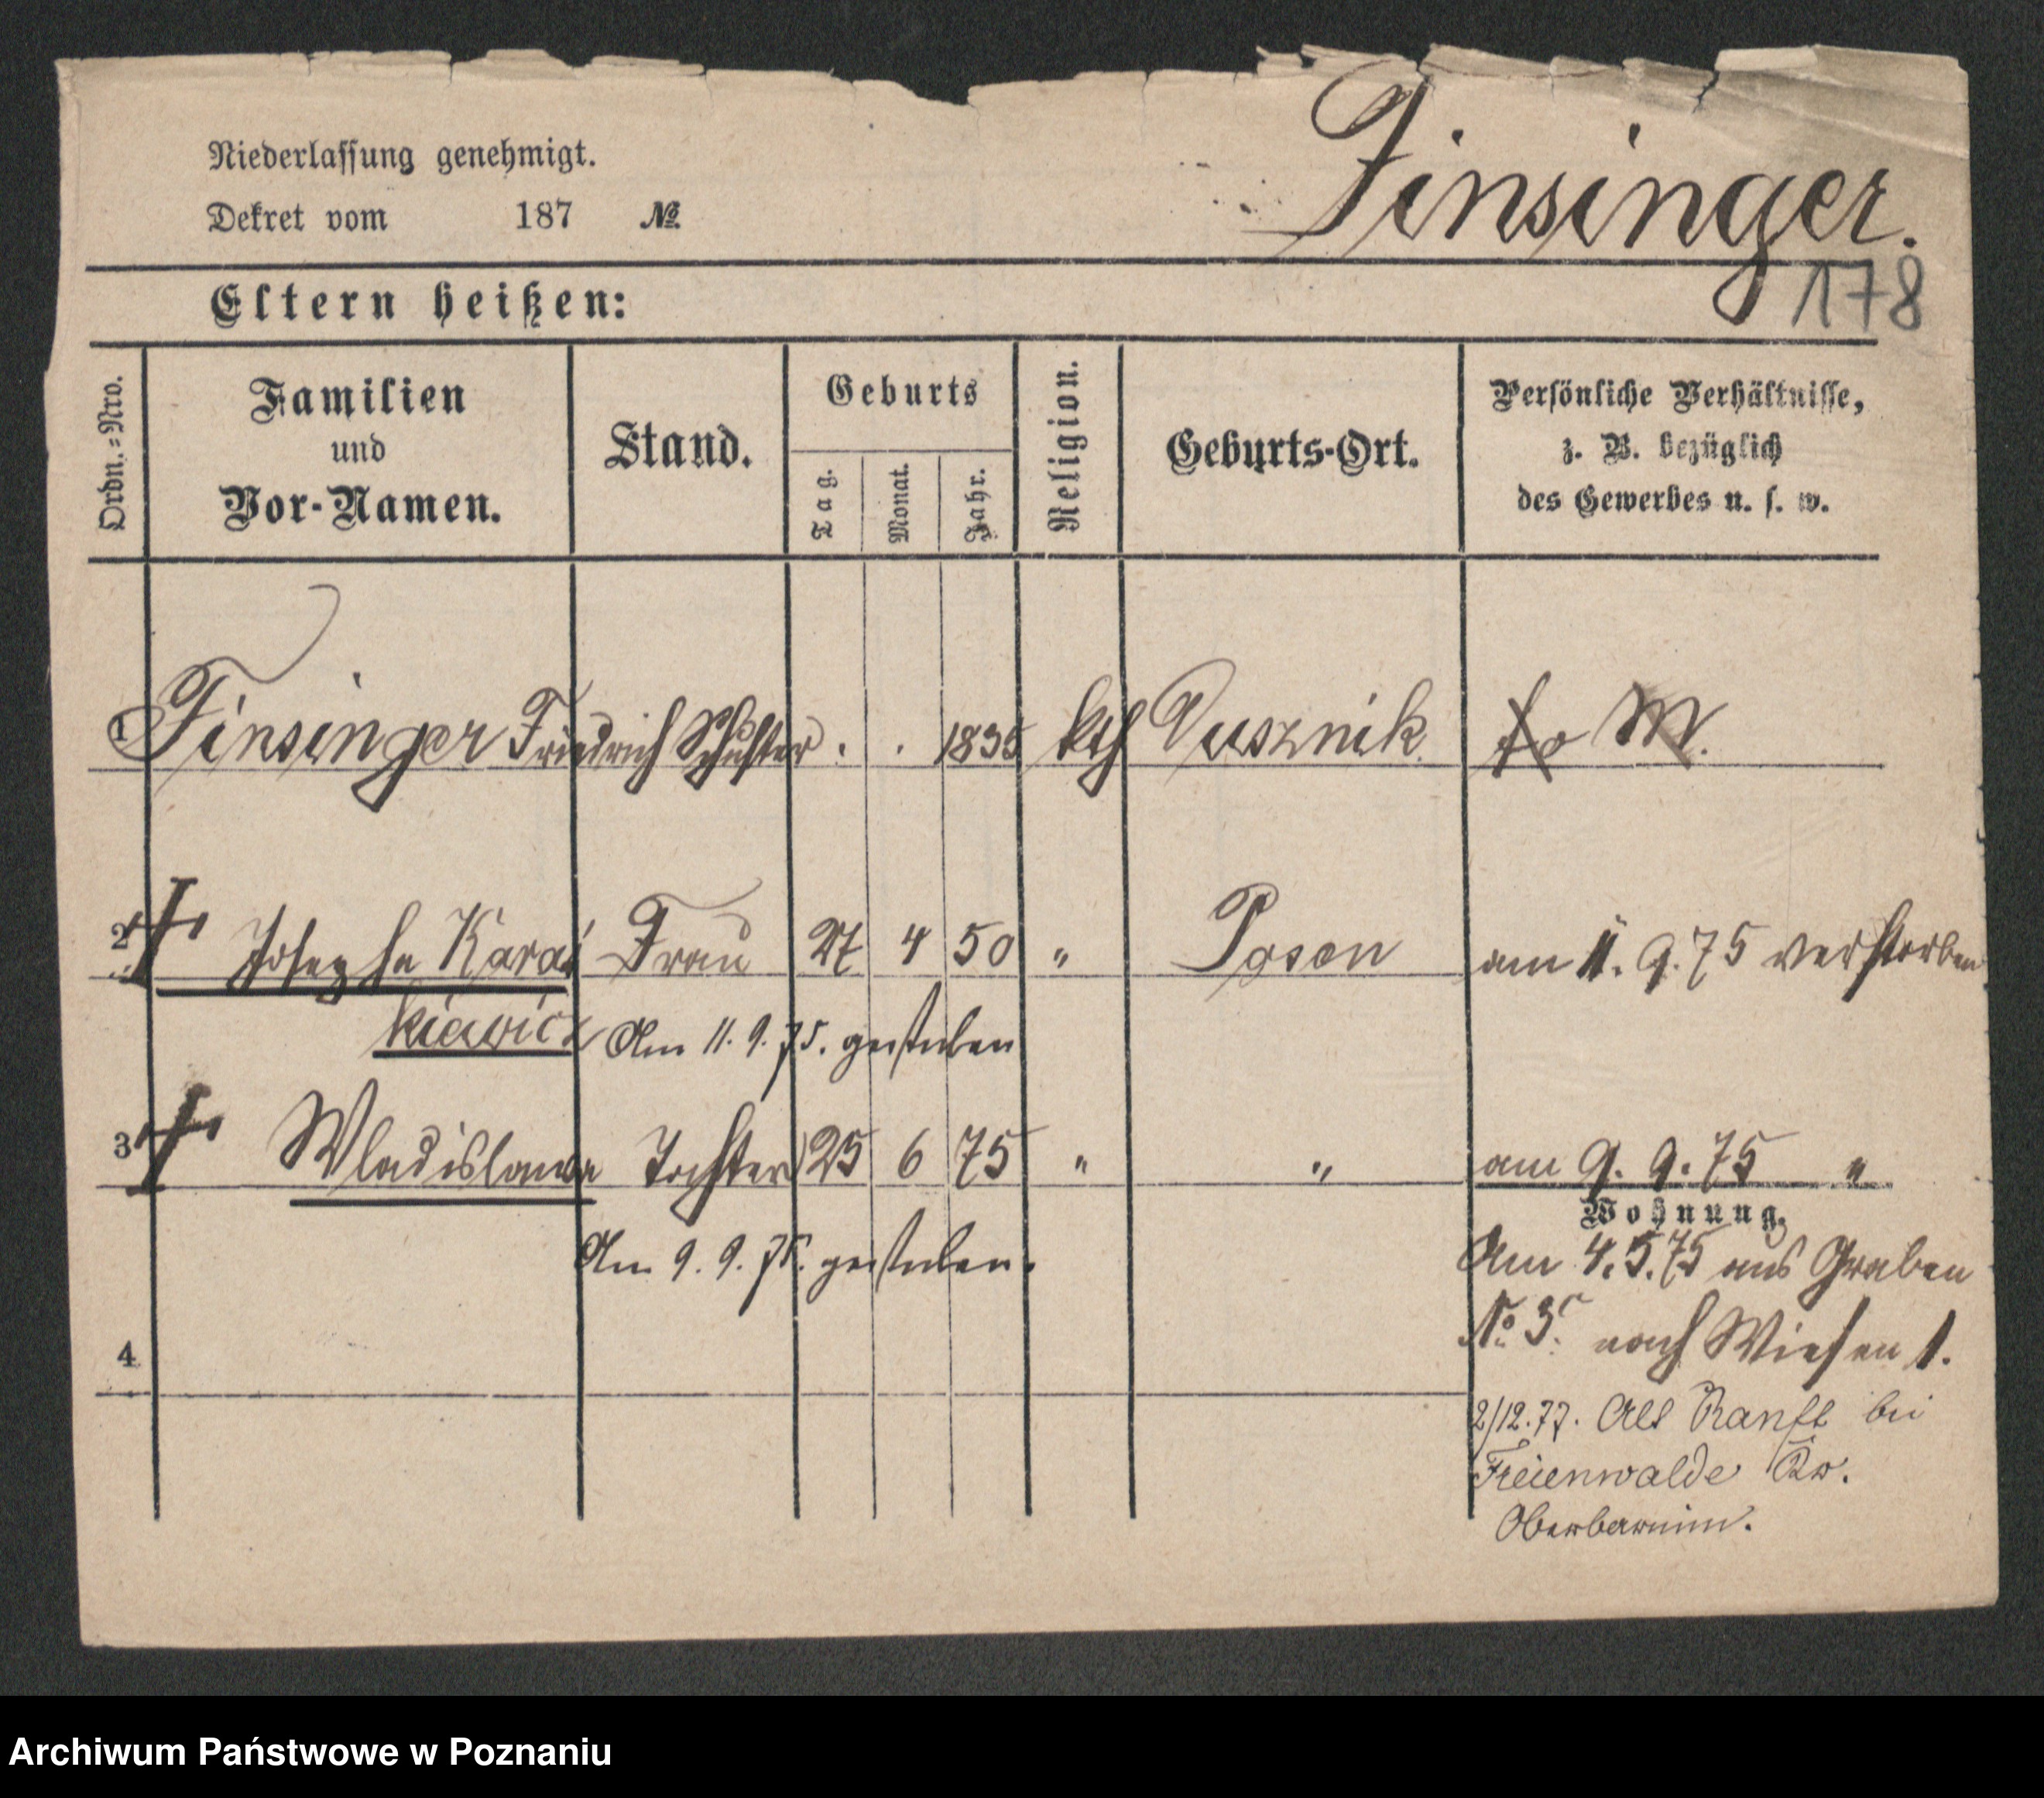 Finsinger.
Niederlassung genehmigt.
Dekret vom 187 №
178
Eltern heißen:
Ordn.=Nro.
Familien
und
Vor-Namen.
Stand.
Geburts
Tag.
Monat.
Jahr.
Religion.
Geburts-Ort.
Persönliche Verhältnisse,
z. B. bezüglich
des Gewerbes u. s. w.
1 Finsinger Friedrich Schuster . . 1835 kth Dusznik M.
2 Josepha Karas Frau 27 4 50 " Posen am 11. 9. 75 verstorben
kiewicz Am 11. 9. 75. gestorben
3 Wladislawa Tochter 25 6 75 " " am 9. 9. 75 "
Wohnung.
Am 9. 9. 75. gestorben.
Am 4. 5. 75 aus Graben
No 3. nach Wiesen 1.
4
2/12. 77. Alt Ranft bei
Freienwalde
Oberbarnim.
Archiwum Państwowe w Poznaniu